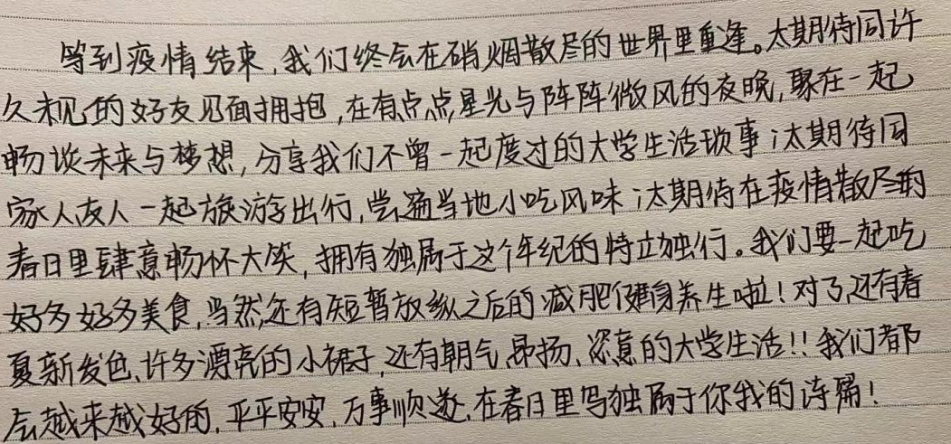 等到疫情结束,我们终会在硝烟散尽的世界里重逢。太期待同许
久未见的好友见面拥抱,在有点点星光与阵阵微风的夜晚,聚在一起
畅谈未来与梦想,分享我们不曾一起度过的大学生活琐事;太期待同
家人友人一起旅游出行,尝遍当地小吃风味;太期待在疫情散尽的
春日里肆意畅怀大笑,拥有独属于这个年纪的特立独行。我们要一起吃
好多好多美食,当然还有短暂放纵之后的减肥健身养生啦!对了,还有春
夏新发色、许多漂亮的小裙子,还有朝气、昂扬、恣意的大学生活!!我们都
会越来越好的,平平安安,万事顺遂,在春日里写独属于你我的诗篇!